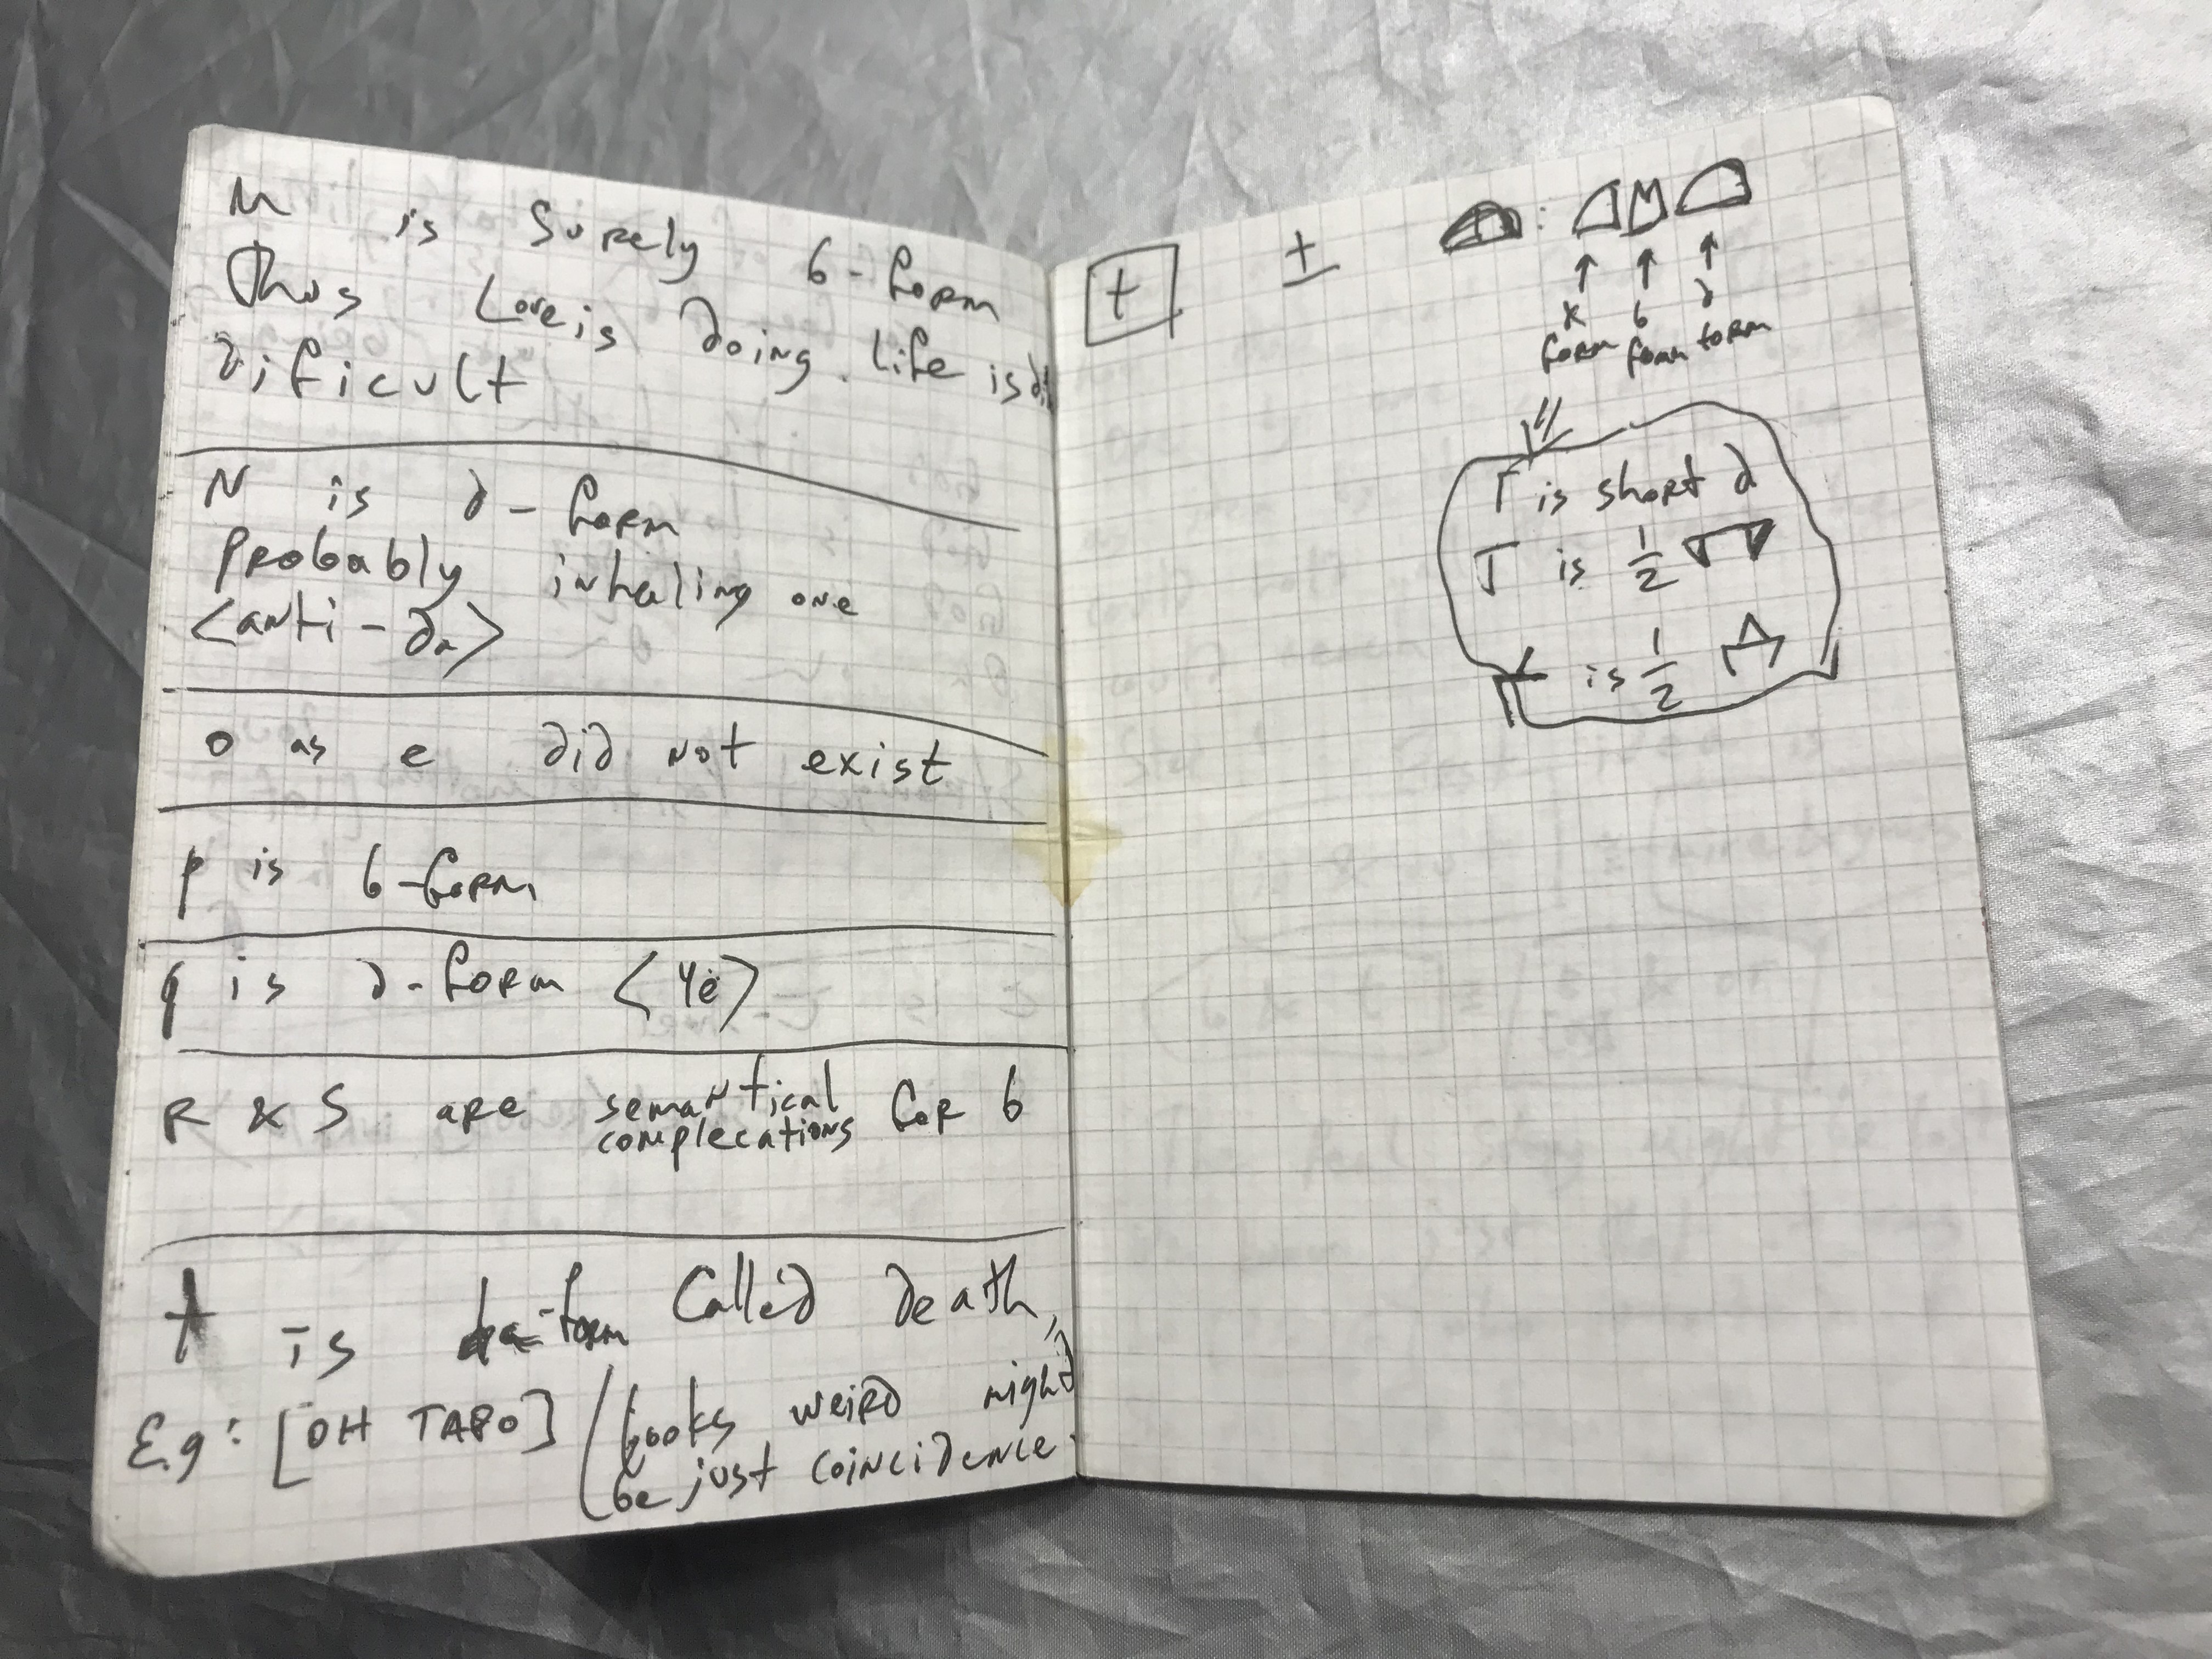 M is surely b-form
thus Love is doing. Life is di
dificult
N is d-form
probably inhaling one
<anti-da>
o as e did not exist
p is b-form
q is d-form <'4e>
R & S are semantical complecations for b
t is da-form called death,
E.g: [OH TABO] (looks weird might
be just coincidence.
t
±
x b d
form form form
is short d
T is 1/2
is 1/2